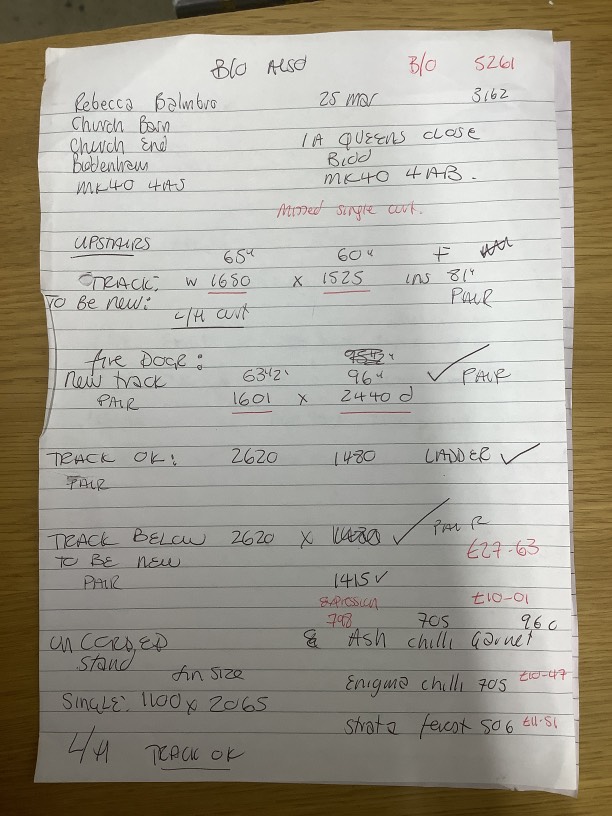 B/O Also B/O 5261
Rebecca Balmbro 25 mar 3162
Church Barn
Church End 1A QUEENS CLOSE
Biddenham Bidd
MK40 4AS MK40 4AB.
Missed single curt.
UPSTAIRS 65" 60" F
TRACK: W 1650 X 1525 ins 81"
TO BE New: PAIR
L/H curt
fire Door:
New track 63 1/2" 96" ✓ PAIR
PAIR 1601 X 2440 d
TRACK OK: 2620 1480 LADDER ✓
PAIR
TRACK BELOW 2620 X 1480 ✓ PAIR
TO BE NEW £27-63
PAIR 1415 ✓
Expression £10-01
798 705 960
UNCORDED & Ash chilli Garnet
Stand
fin size Enigma chilli 705 £10-47
SINGLE: 1100 X 2065
strata 506 £11-51
L/H TRACK OK